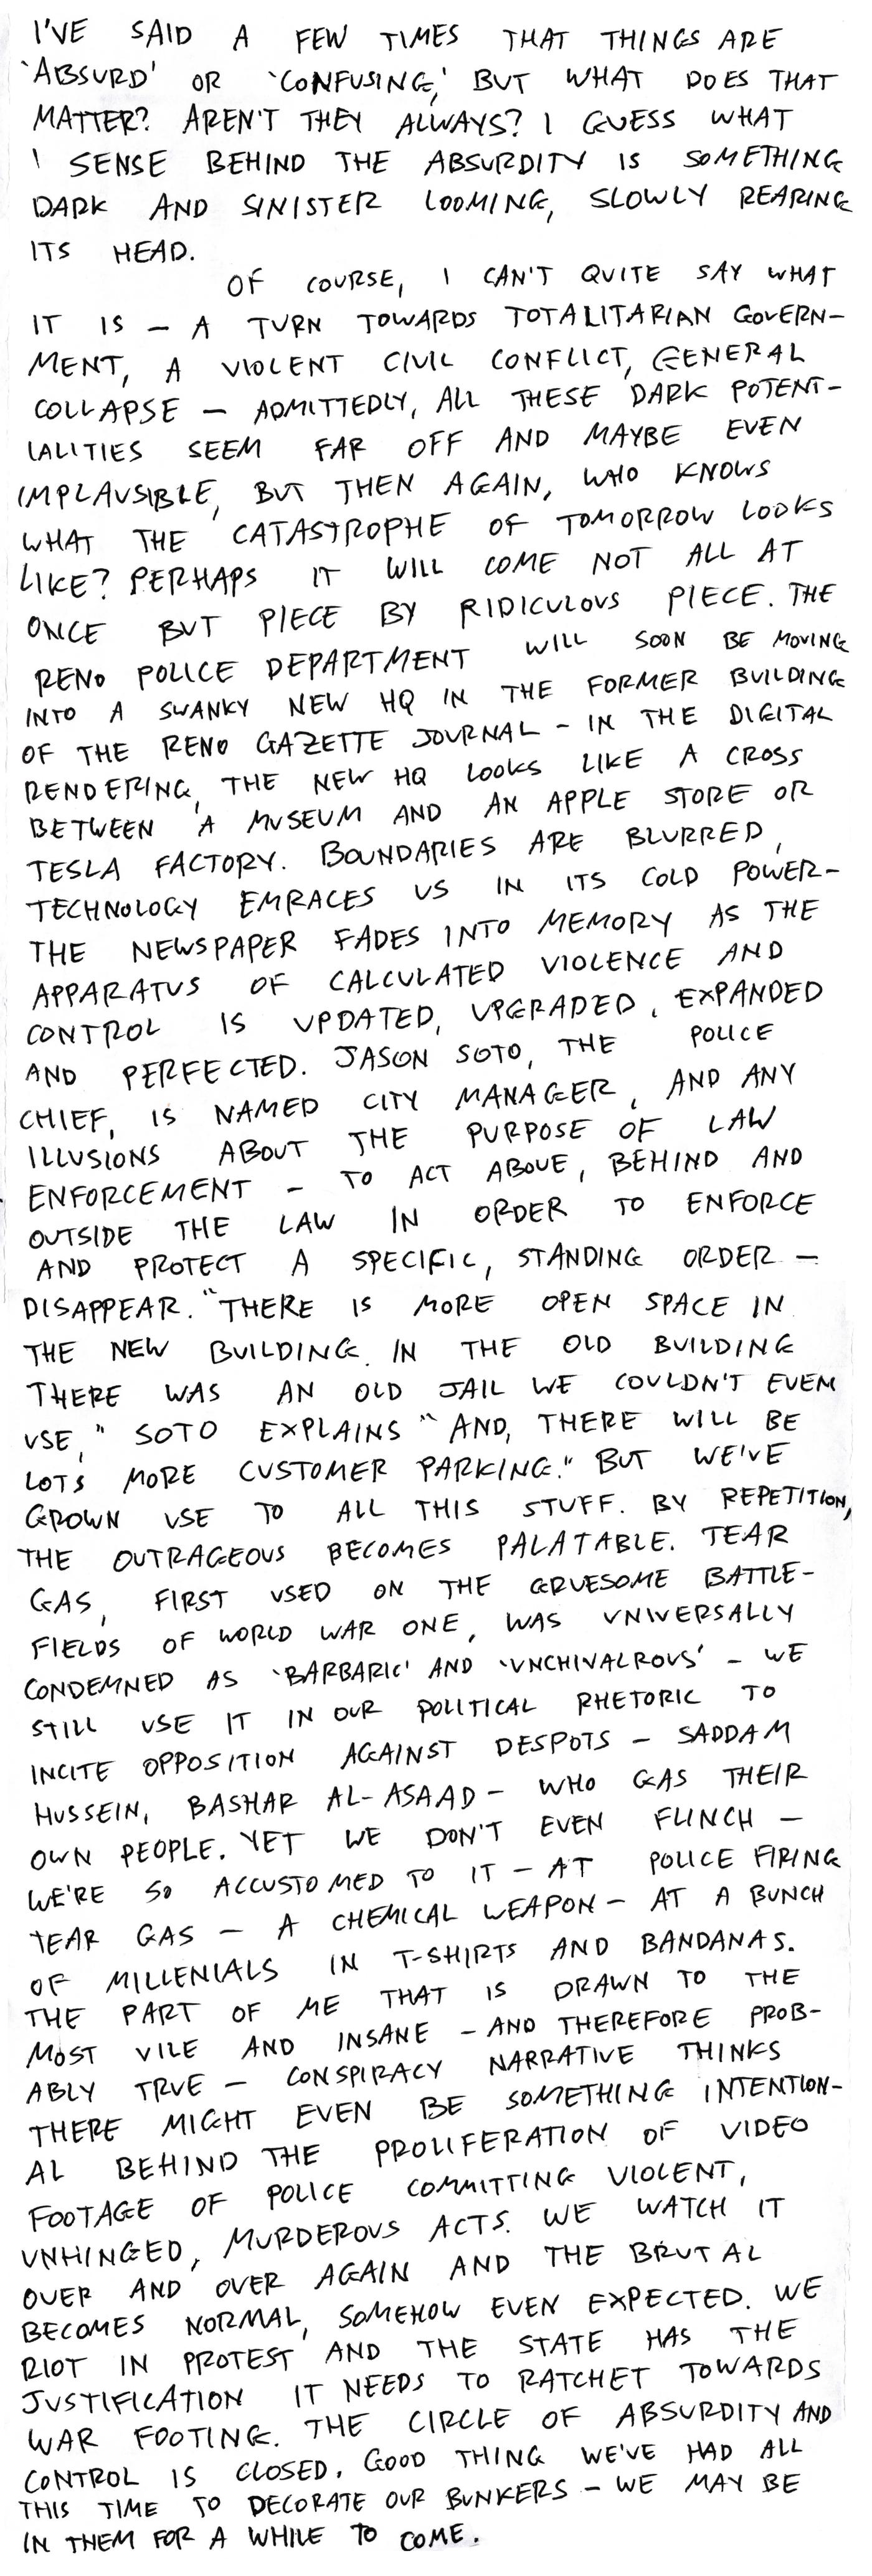 I'VE SAID A FEW TIMES THAT THINGS ARE
'ABSURD' OR 'CONFUSING,' BUT WHAT DOES THAT
MATTER? AREN'T THEY ALWAYS? I GUESS WHAT
I SENSE BEHIND THE ABSURDITY IS SOMETHING
DARK AND SINISTER LOOMING, SLOWLY REARING
ITS HEAD.
OF COURSE, I CAN'T QUITE SAY WHAT
IT IS – A TURN TOWARDS TOTALITARIAN GOVERN-
MENT, A VIOLENT CIVIL CONFLICT, GENERAL
COLLAPSE – ADMITTEDLY, ALL THESE DARK POTENT-
IALITIES SEEM FAR OFF AND MAYBE EVEN
IMPLAUSIBLE, BUT THEN AGAIN, WHO KNOWS
WHAT THE CATASTROPHE OF TOMORROW LOOKS
LIKE? PERHAPS IT WILL COME NOT ALL AT
ONCE BUT PIECE BY RIDICULOUS PIECE. THE
RENO POLICE DEPARTMENT WILL SOON BE MOVING
INTO A SWANKY NEW HQ IN THE FORMER BUILDING
OF THE RENO GAZETTE JOURNAL – IN THE DIGITAL
RENDERING, THE NEW HQ LOOKS LIKE A CROSS
BETWEEN A MUSEUM AND AN APPLE STORE OR
TESLA FACTORY. BOUNDARIES ARE BLURRED,
TECHNOLOGY EMRACES US IN ITS COLD POWER –
THE NEWSPAPER FADES INTO MEMORY AS THE
APPARATUS OF CALCULATED VIOLENCE AND
CONTROL IS UPDATED, UPGRADED, EXPANDED
AND PERFECTED. JASON SOTO, THE POLICE
CHIEF, IS NAMED CITY MANAGER, AND ANY
ILLUSIONS ABOUT THE PURPOSE OF LAW
ENFORCEMENT – TO ACT ABOVE, BEHIND AND
OUTSIDE THE LAW IN ORDER TO ENFORCE
AND PROTECT A SPECIFIC, STANDING ORDER –
DISAPPEAR. "THERE IS MORE OPEN SPACE IN
THE NEW BUILDING. IN THE OLD BUILDING
THERE WAS AN OLD JAIL WE COULDN'T EVEN
USE," SOTO EXPLAINS "AND, THERE WILL BE
LOTS MORE CUSTOMER PARKING." BUT WE'VE
GROWN USE TO ALL THIS STUFF. BY REPETITION,
THE OUTRAGEOUS BECOMES PALATABLE. TEAR
GAS, FIRST USED ON THE GRUESOME BATTLE-
FIELDS OF WORLD WAR ONE, WAS UNIVERSALLY
CONDEMNED AS 'BARBARIC' AND 'UNCHIVALROUS' – WE
STILL USE IT IN OUR POLITICAL RHETORIC TO
INCITE OPPOSITION AGAINST DESPOTS – SADDAM
HUSSEIN, BASHAR AL-ASAAD – WHO GAS THEIR
OWN PEOPLE. YET WE DON'T EVEN FLINCH –
WE'RE SO ACCUSTOMED TO IT – AT POLICE FIRING
TEAR GAS – A CHEMICAL WEAPON – AT A BUNCH
OF MILLENIALS IN T-SHIRTS AND BANDANAS.
THE PART OF ME THAT IS DRAWN TO THE
MOST VILE AND INSANE – AND THEREFORE PROB-
ABLY TRUE – CONSPIRACY NARRATIVE THINKS
THERE MIGHT EVEN BE SOMETHING INTENTION-
AL BEHIND THE PROLIFERATION OF VIDEO
FOOTAGE OF POLICE COMMITTING VIOLENT,
UNHINGED, MURDEROUS ACTS. WE WATCH IT
OVER AND OVER AGAIN AND THE BRUTAL
BECOMES NORMAL, SOMEHOW EVEN EXPECTED. WE
RIOT IN PROTEST AND THE STATE HAS THE
JUSTIFICATION IT NEEDS TO RATCHET TOWARDS
WAR FOOTING. THE CIRCLE OF ABSURDITY AND
CONTROL IS CLOSED. GOOD THING WE'VE HAD ALL
THIS TIME TO DECORATE OUR BUNKERS – WE MAY BE
IN THEM FOR A WHILE TO COME.